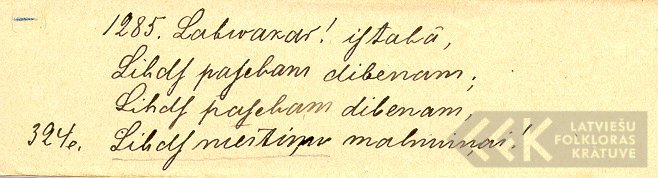 1285. Labwakar! iſtabā,
Lihdſ paſcham dibenam;
Lihdſ paſcham dibenam,
324e. Lihdſ meitiņu maliņai!
LATVIEŠU
FOLKLORAS
KRĀTUVE